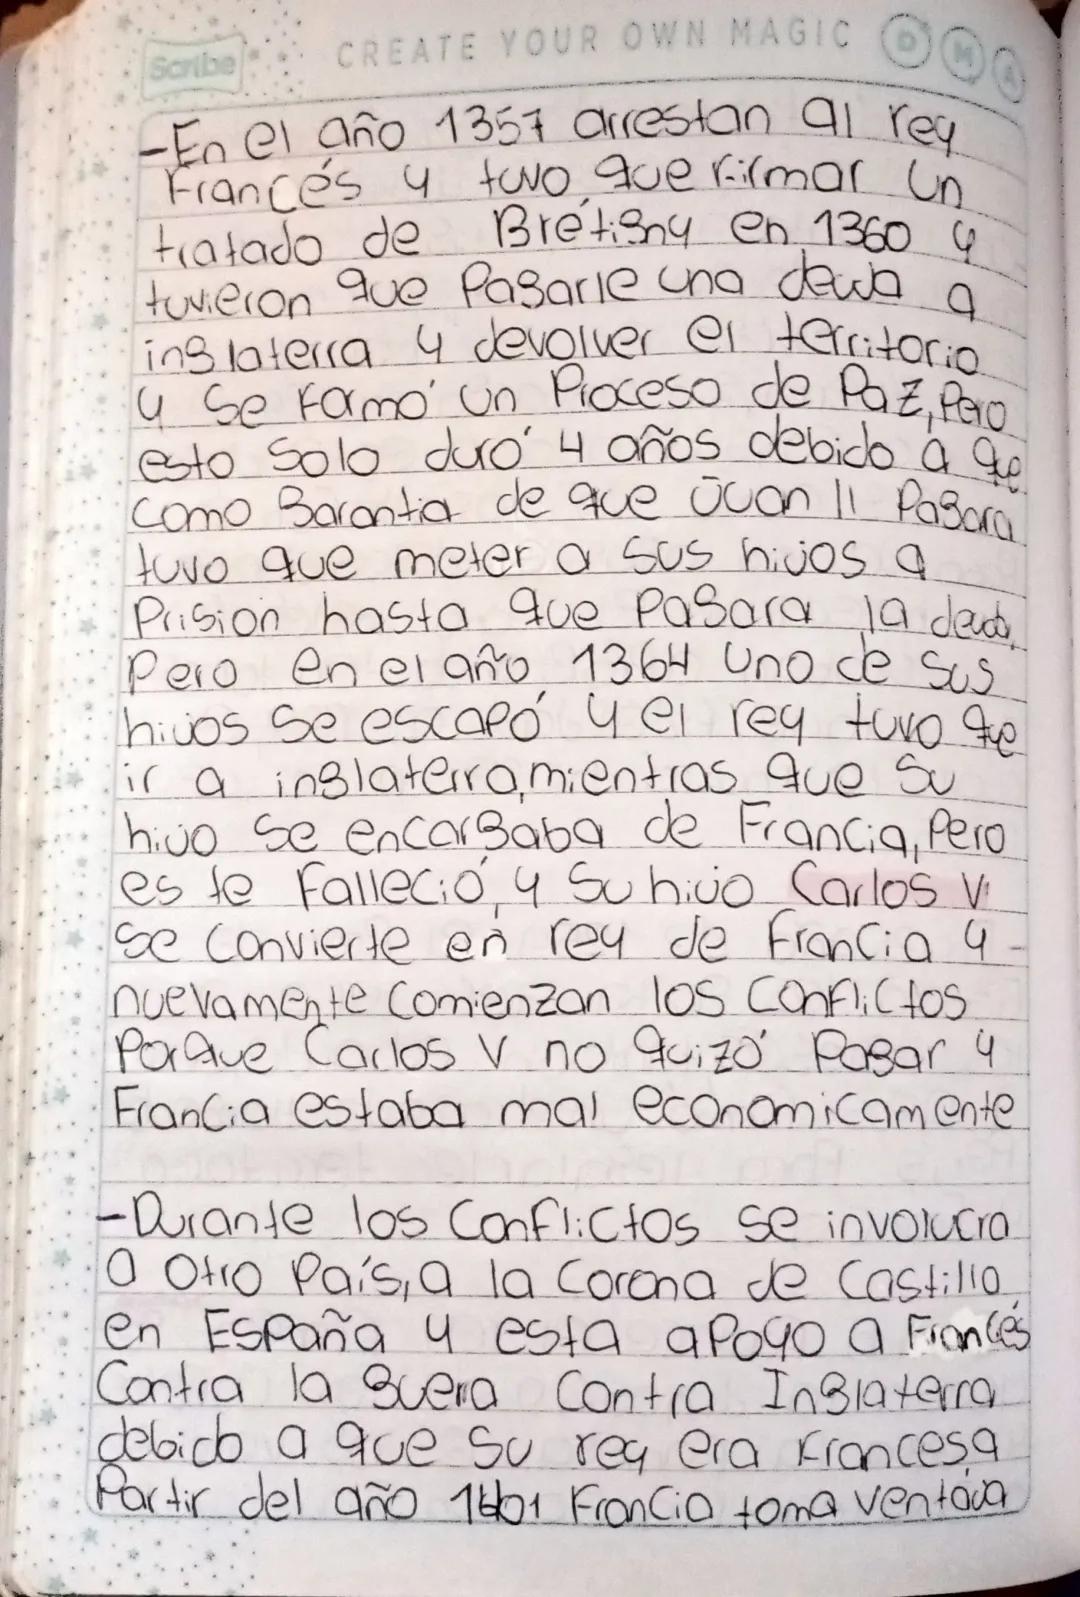 Scribe CREATE YOUR OWN MAGIC D M A
-En el año 1357 arrestan al rey
Francés y tuvo que firmar un
tratado de Brétigny en 1360 y
tuvieron que pagarle una deuda a
inglaterra y devolver el territorio
y se formó un Proceso de Paz, Pero
esto solo duró 4 años debido a que
como garantia de que Juan II Pagara
tuvo que meter a sus hijos a
Prision hasta que Pagara la deuda,
Pero en el año 1364 uno de sus
hijos se escapó y el rey tuvo que
ir a inglaterra, mientras que su
hijo se encargaba de Francia, Pero
este Falleció, y su hijo Carlos V
se convierte en rey de Francia y
nuevamente comienzan los conflictos
Porque Carlos V no quizó Pagar y
Francia estaba mal economicamente
-Durante los conflictos se involucra
a otro País, a la Corona de Castilla
en España y esta apoyo a Francés
Contra la guerra contra Inglaterra
debido a que su rey era francesa
Partir del año 1401 Francia toma ventaja